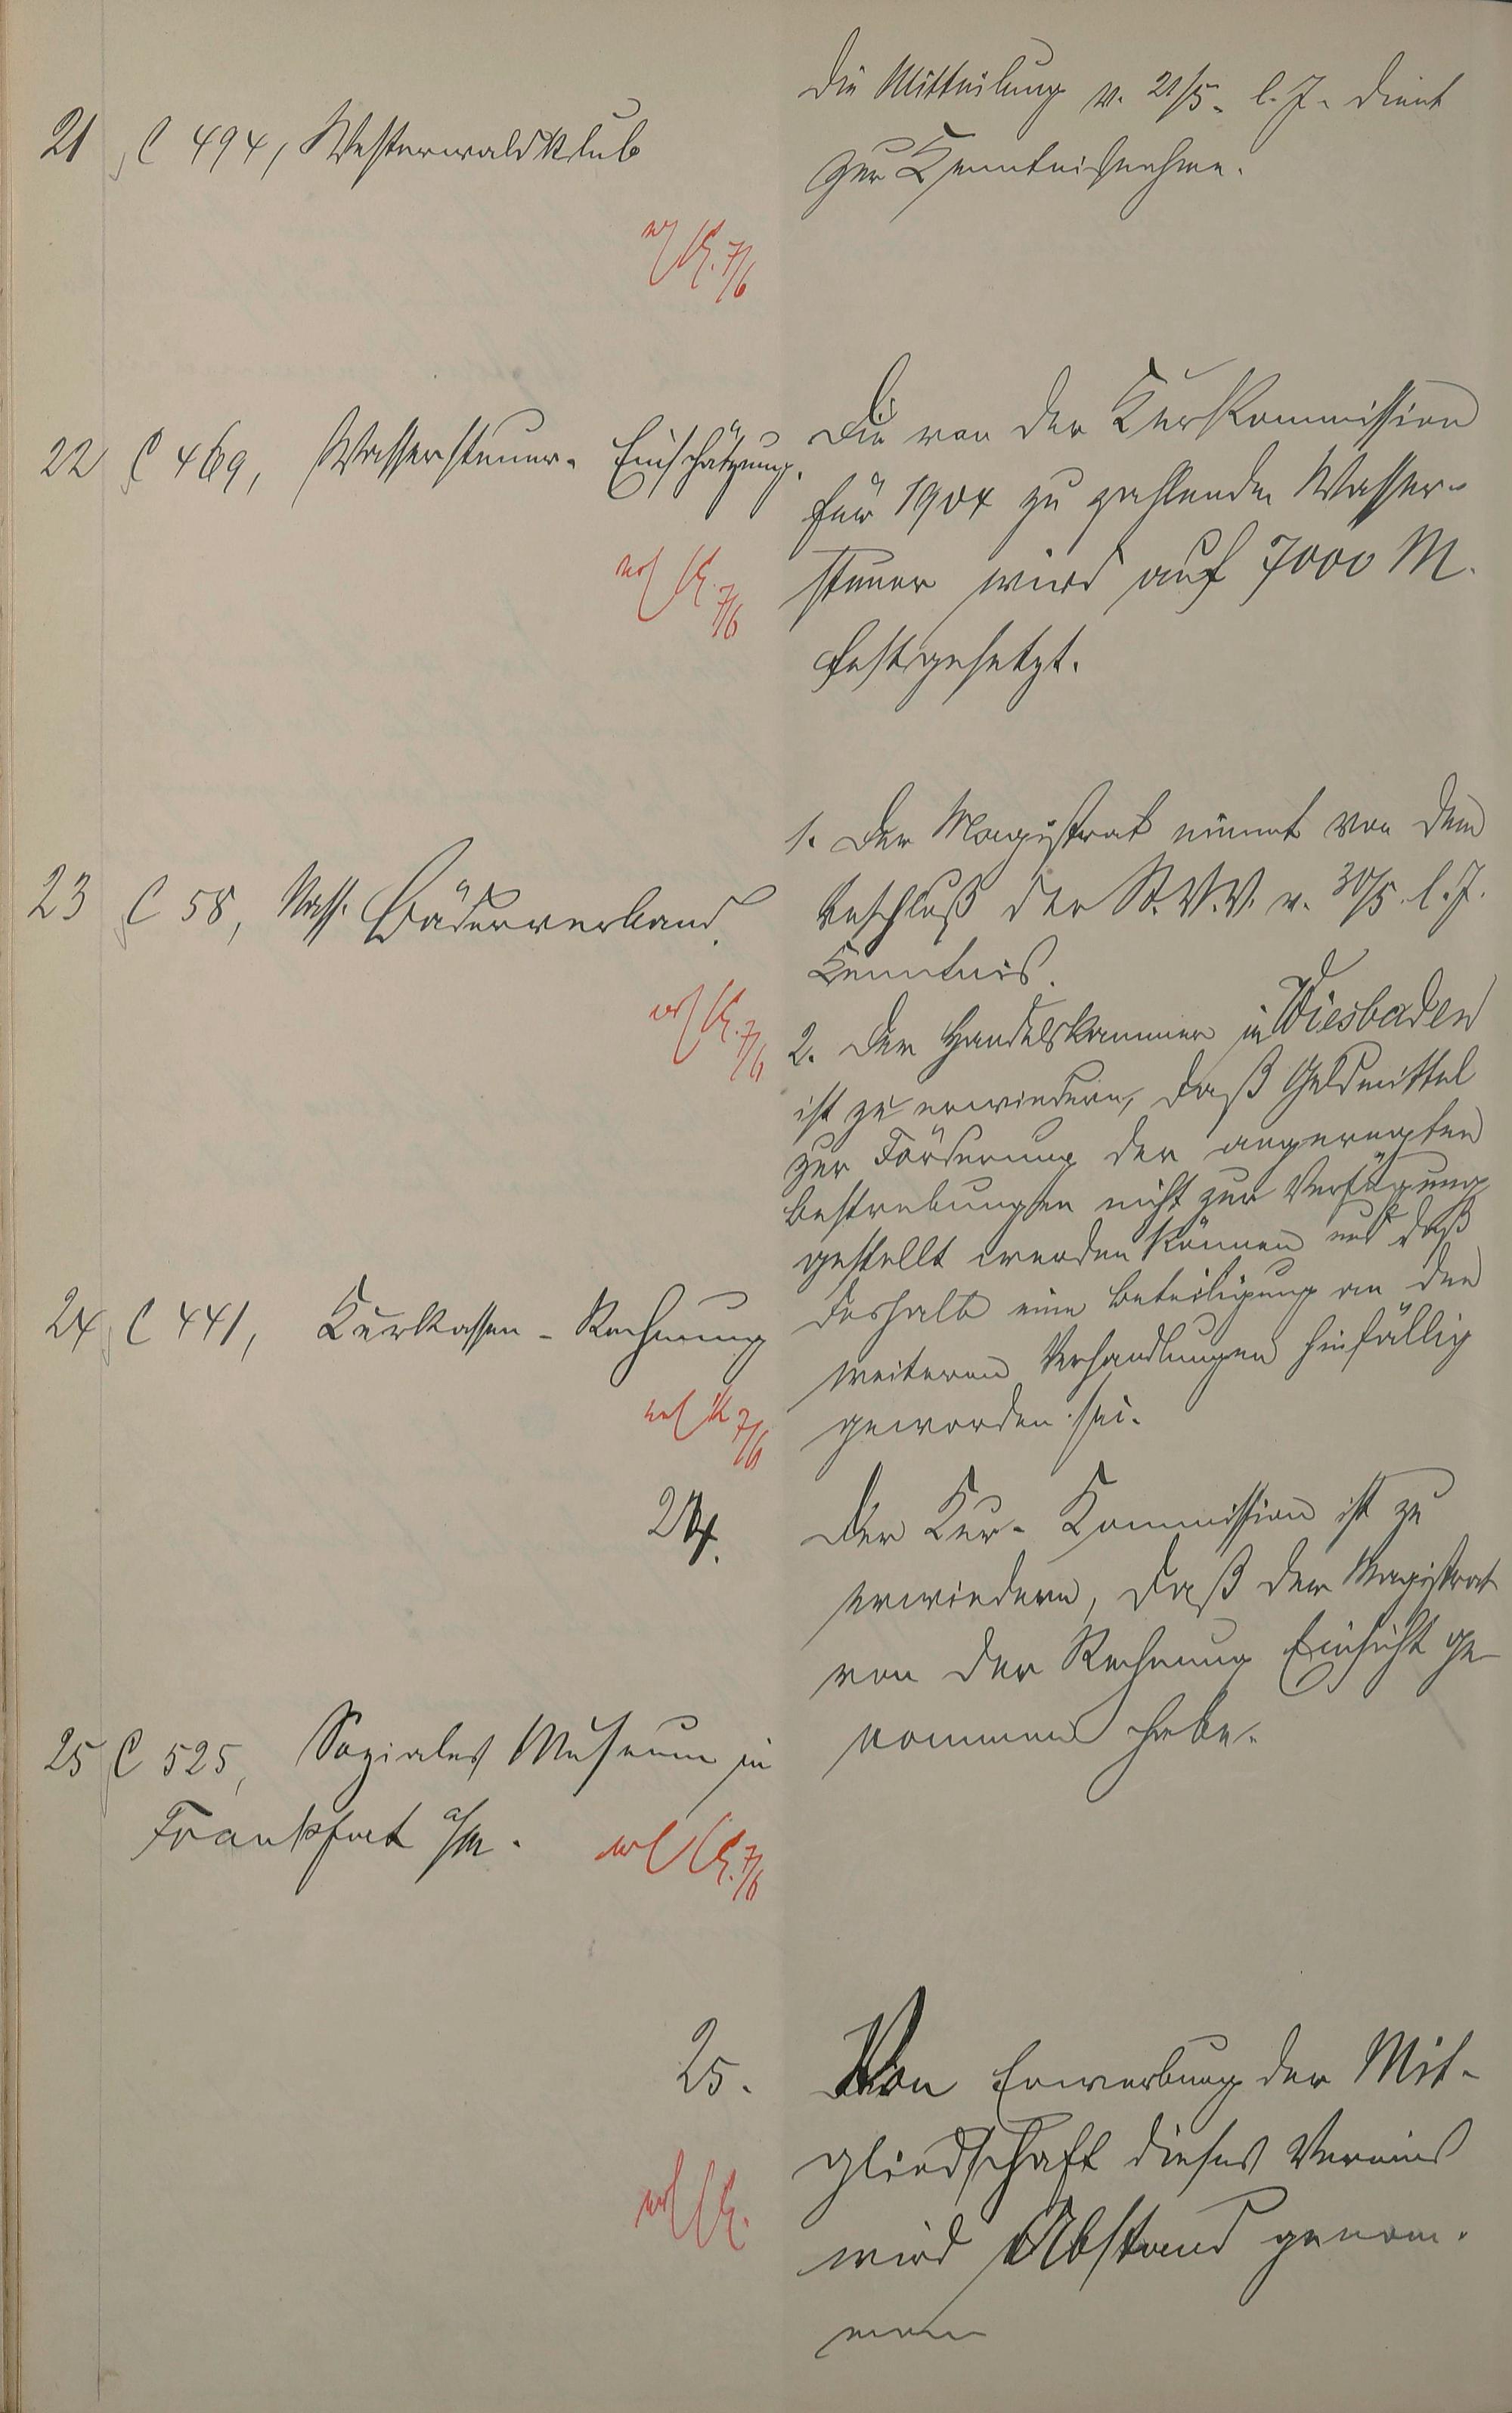 21 C 494, Westerwaldklub
Die Mitteilung v. 21/5. l. J. dient
zur Kenntnisnahme.
7/6
22 C 469, Wassersteuer-Einschätzung.
Die von der Kurkommission
für 1904 zu zahlende Wasser-
steuer wird auf 7000 M.
festgesetzt.
7/6
23 C 58, Nass. Bäderverband.
1. Der Magistrat nimmt von dem
Beschluß der St. V. V. v. 30/5. l. J.
Kenntnis.
2. Der Handelskammer in Wiesbaden
ist zu erwiedern, daß Geldmittel
zur Förderung der angeregten
Bestrebungen nicht zur Verfügung
gestellt werden können und daß
deshalb eine Beteiligung an den
weiteren Verhandlungen hinfällig
geworden sei.
7/6
24 C 441, Kurkassen-Rechnung
7/6
24. Der Kur-Kommission ist zu
erwiedern, daß der Magistrat
von der Rechnung Einsicht ge-
nommen habe.
25 C 525, Soziales Museum in
Frankfurt a/M.
7/6
25. Von Erwerbung der Mit-
gliedschaft dieses Vereins
wird Abstand genom-
men